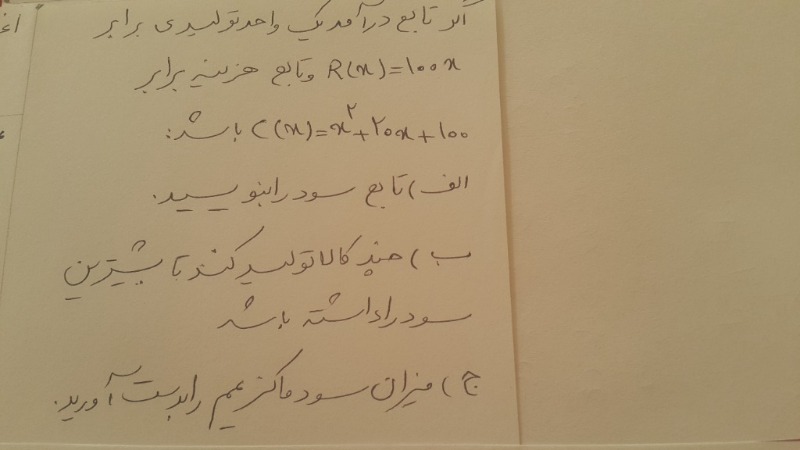 اگر تابع درآمد یک واحد تولیدی برابر
R(x)=100x وتابع هزینه برابر
C(x)=x²+20x+100 باشد:
الف) تابع سود را بنویسید.
ب) چند کالا تولید کند تا بیشترین
سود را داشته باشد
ج) میزان سود ماکزیمم را بدست آورید.